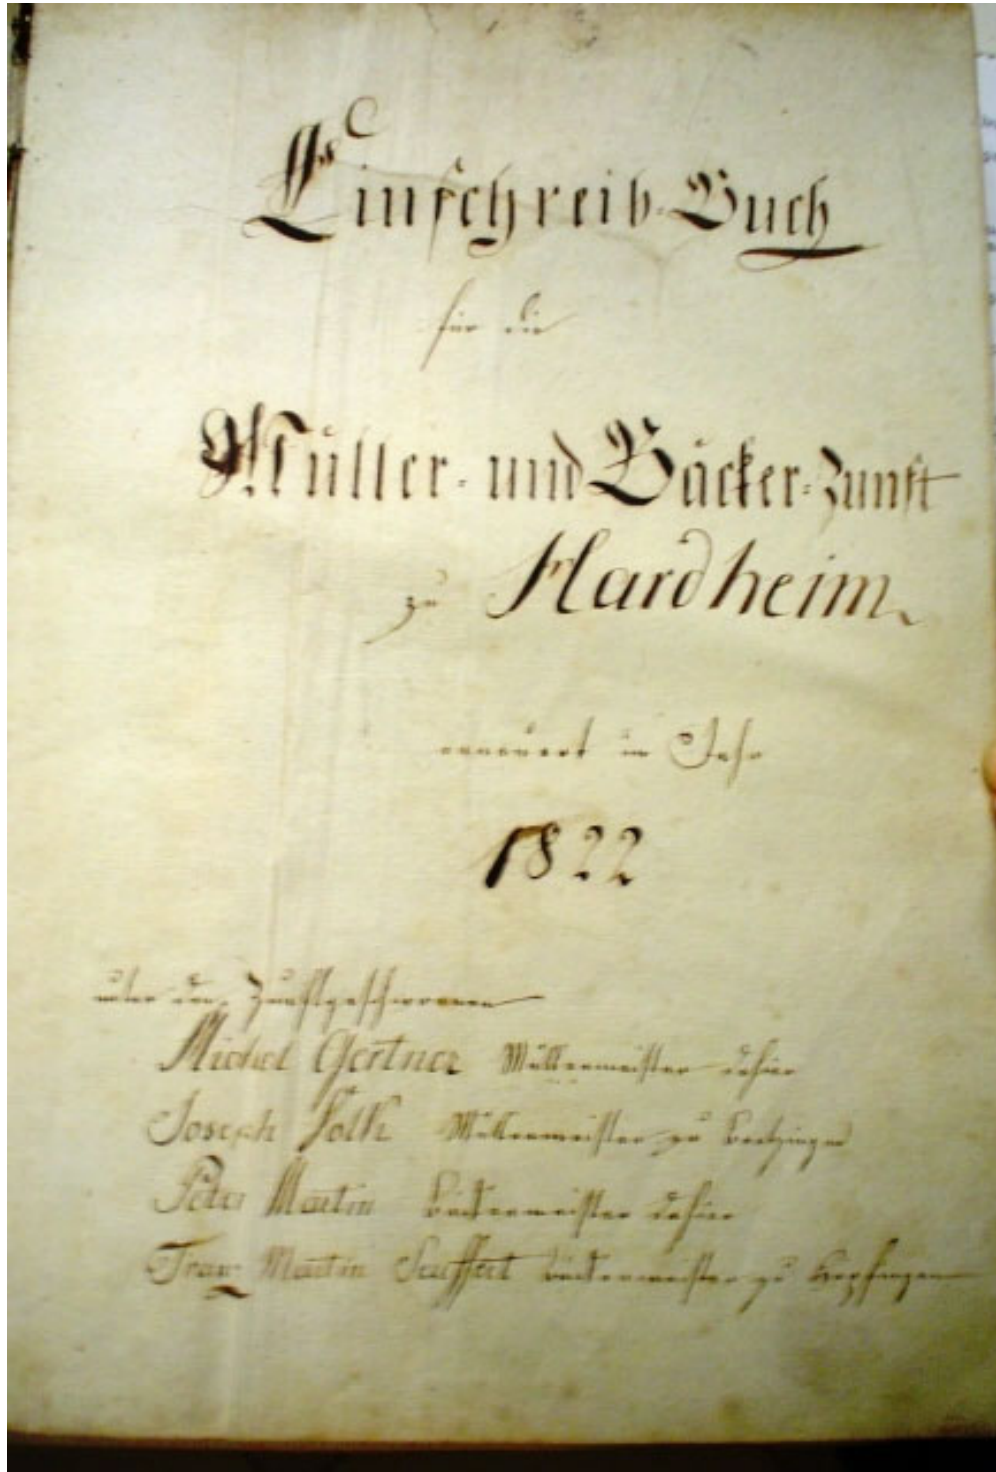 Einschreib-Buch
für die
Müller- und Bäcker-Zunft
zu Hardheim
erneuert im Jahr
1822
unter den Zunftgeschworenen
Michel Gertner Müllermeister dahier
Joseph Folk Müllermeister zu Bretzingen
Peter Martin Bäckermeister dahier
Franz Martin Seuffert Bäckermeister zu Höpfingen